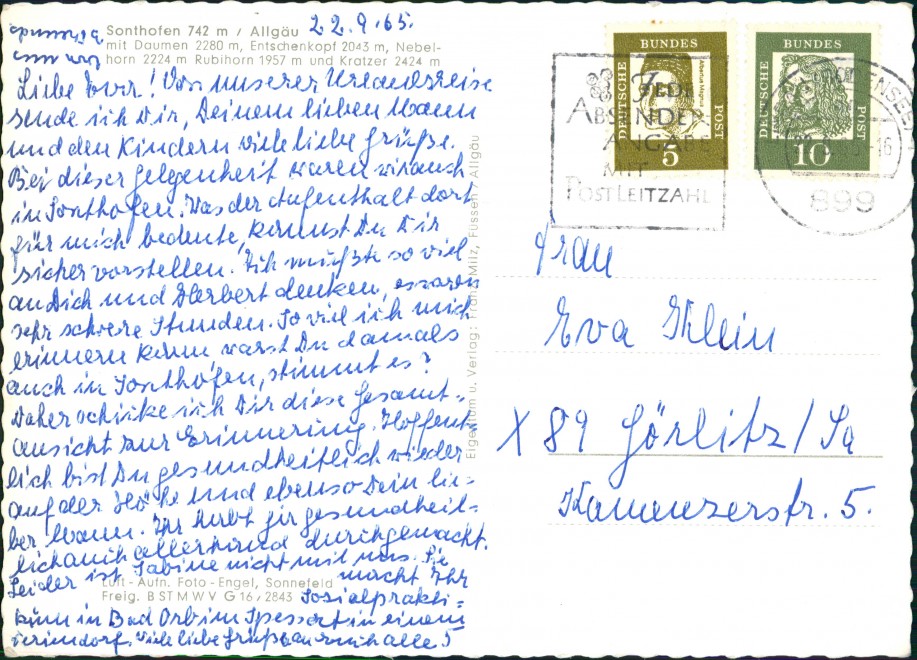 Sonthofen 742 m / Allgäu
mit Daumen 2280 m, Entschenkopf 2043 m, Nebel-
horn 2224 m Rubihorn 1957 m und Kratzer 2424 m
22.9.65.
Liebe Eva! Von unserer Urlaubsreise
sende ich Dir, Deinem lieben Mann
und den Kindern viele liebe Grüße.
Bei dieser Gelegenheit waren wir auch
in Sonthofen. Was der Aufenthalt dort
für mich bedeute, kannst Du Dir
sicher vorstellen. Ich mußte so viel
an Dich und Herbert denken, es waren
sehr schwere Stunden. So viel ich mich
erinnern kann warst Du damals
auch in Sonthofen, stimmt es?
Daher schicke ich Dir diese Gesamt-
ansicht zur Erinnerung. Hoffent-
lich bist Du gesundheitlich wieder
auf der Höhe und ebenso Dein lie-
ber Mann. Ihr habt ja gesundheit-
lich auch allerhand durchgemacht.
Leider ist Sabine nicht mit uns. Sie
macht Ihr
Sozialprakti-
kum in Bad Orb im Spessart in einem
Feriendorf. Viele liebe Grüße an Euch alle!
Luft-Aufn. Foto-Engel, Sonnefeld
Freig. BSTMWV G 16/2843
Eigentum u. Verlag: Franz Milz, Füssen / Allgäu
DEUTSCHE BUNDES POST
Albertus Magnus
5
DEUTSCHE BUNDES POST
10
JEDE
ABSENDER-
ANGABE
MIT
POSTLEITZAHL
899
Frau
Eva Klein
X 89 Görlitz/Sa
Kamenzerstr. 5.